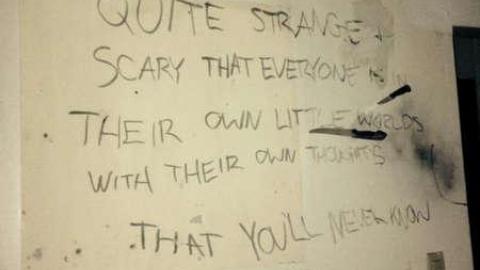 QUITE STRANGE +
SCARY THAT EVERYONE IS IN
THEIR OWN LITTLE WORLDS
WITH THEIR OWN THOUGHTS
THAT YOU'LL NEVER KNOW